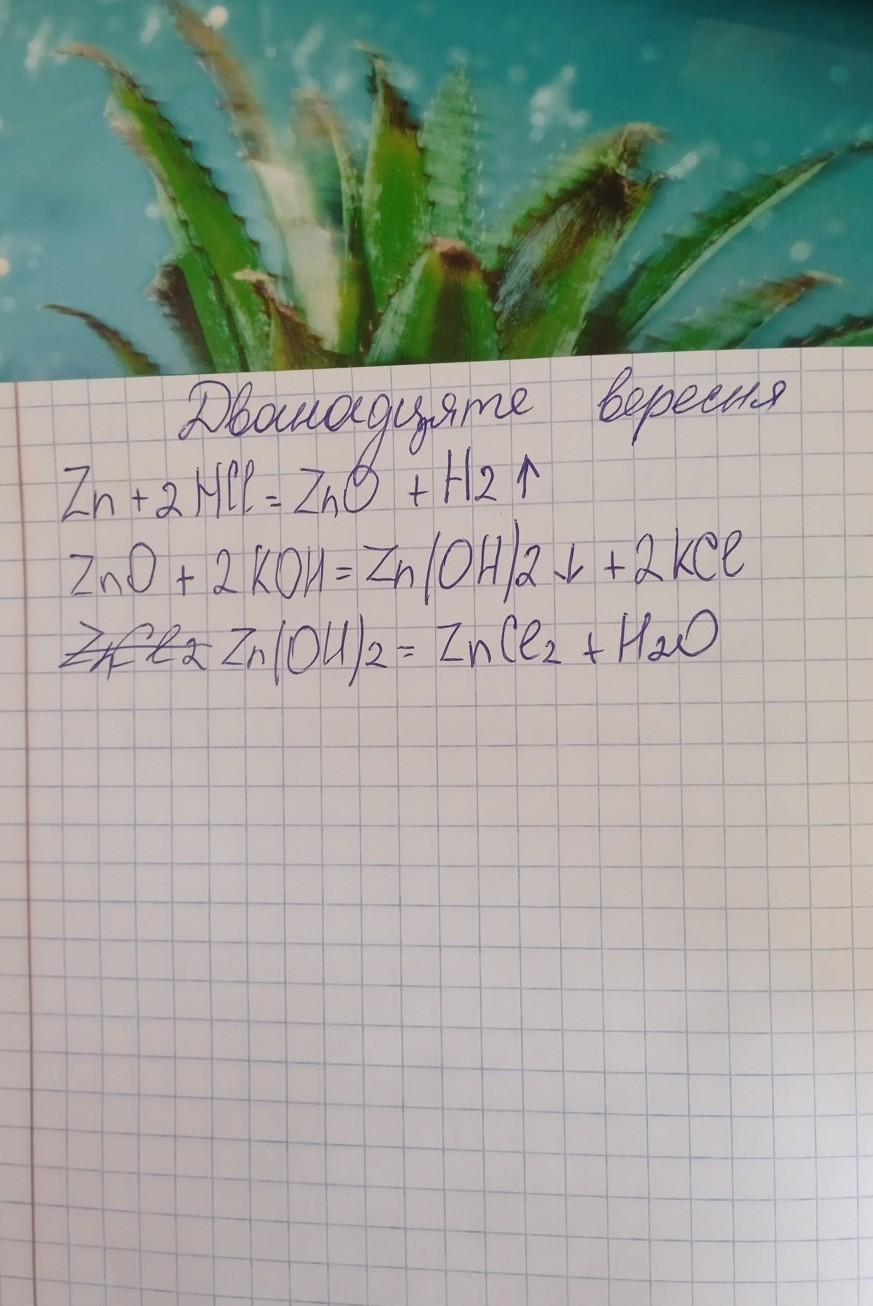 Дванадцяте вересня
Zn + 2HCl = ZnO + H2 ↑
ZnO + 2KOH = Zn(OH)2 ↓ + 2KCl
ZnCl2 Zn(OH)2 = ZnCl2 + H2O